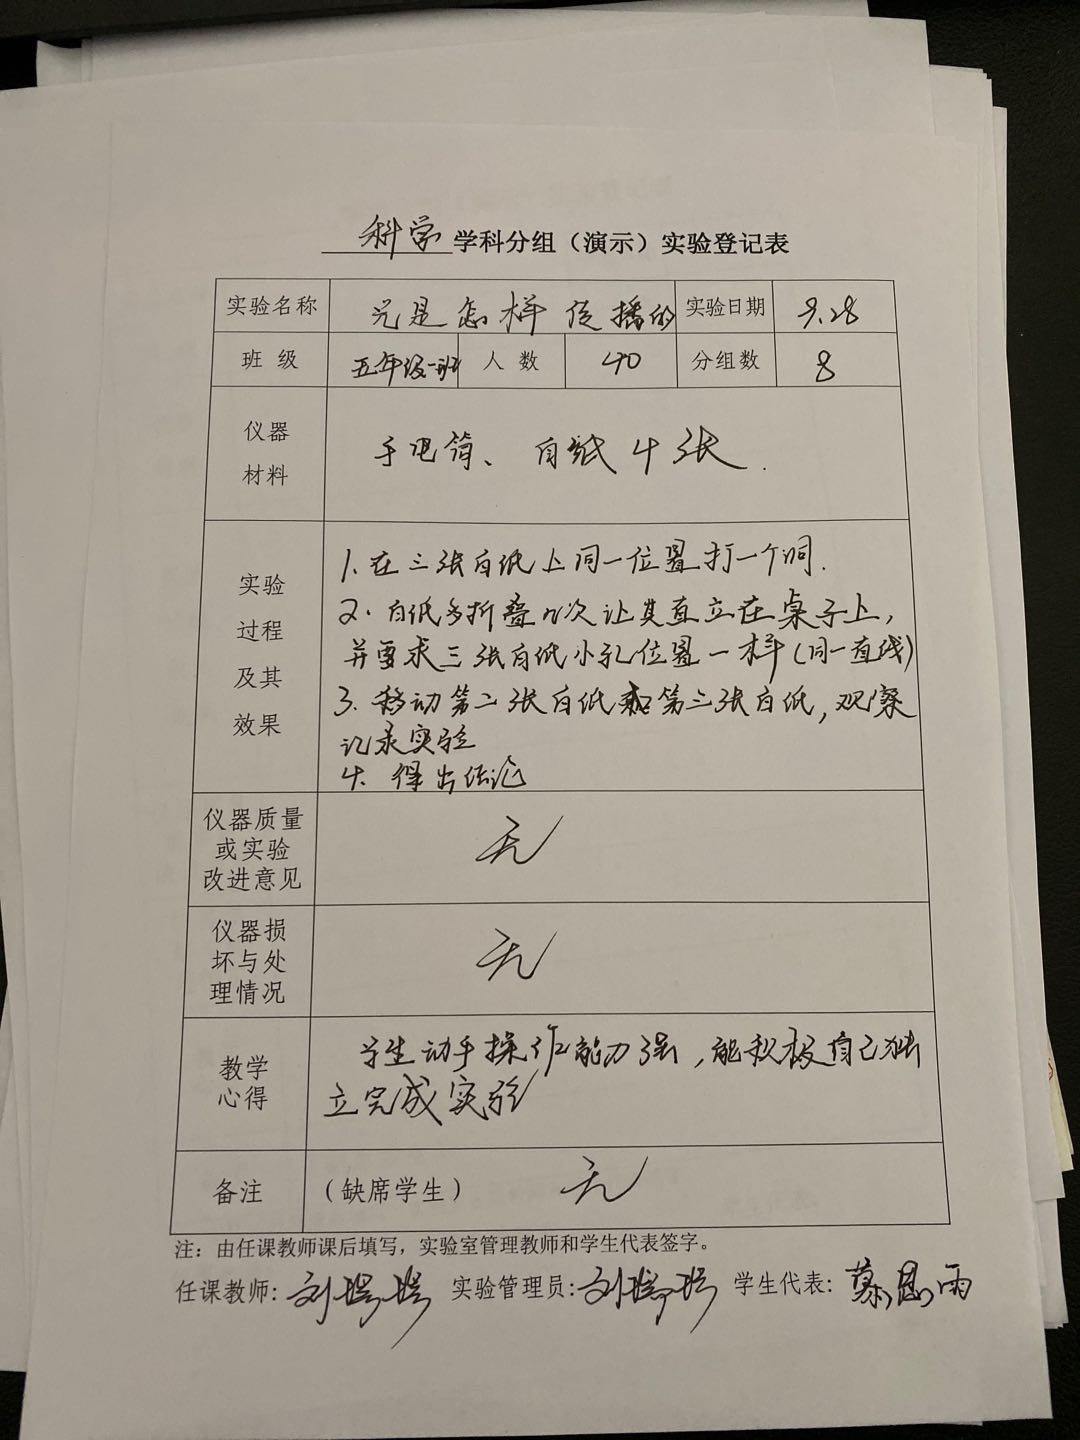 科学学科分组（演示）实验登记表
实验名称 光是怎样传播的 实验日期 9.28
班 级 五年级一班 人 数 40 分组数 8
仪器
材料
手电筒、白纸4张.
实验
过程
及其
效果
1.在三张白纸上同一位置打一个洞.
2.白纸多折叠几次让其直立在桌子上,
并要求三张白纸小孔位置一样(同一直线)
3.移动第二张白纸和第三张白纸,观察
记录实验
4.得出结论
仪器质量
或实验
改进意见
无
仪器损
坏与处
理情况
无
教学
心得
学生动手操作能力强,能积极自己独
立完成实验
备注 （缺席学生） 无
注：由任课教师课后填写，实验室管理教师和学生代表签字。
任课教师: 刘 实验管理员: 刘 学生代表: 慕思雨